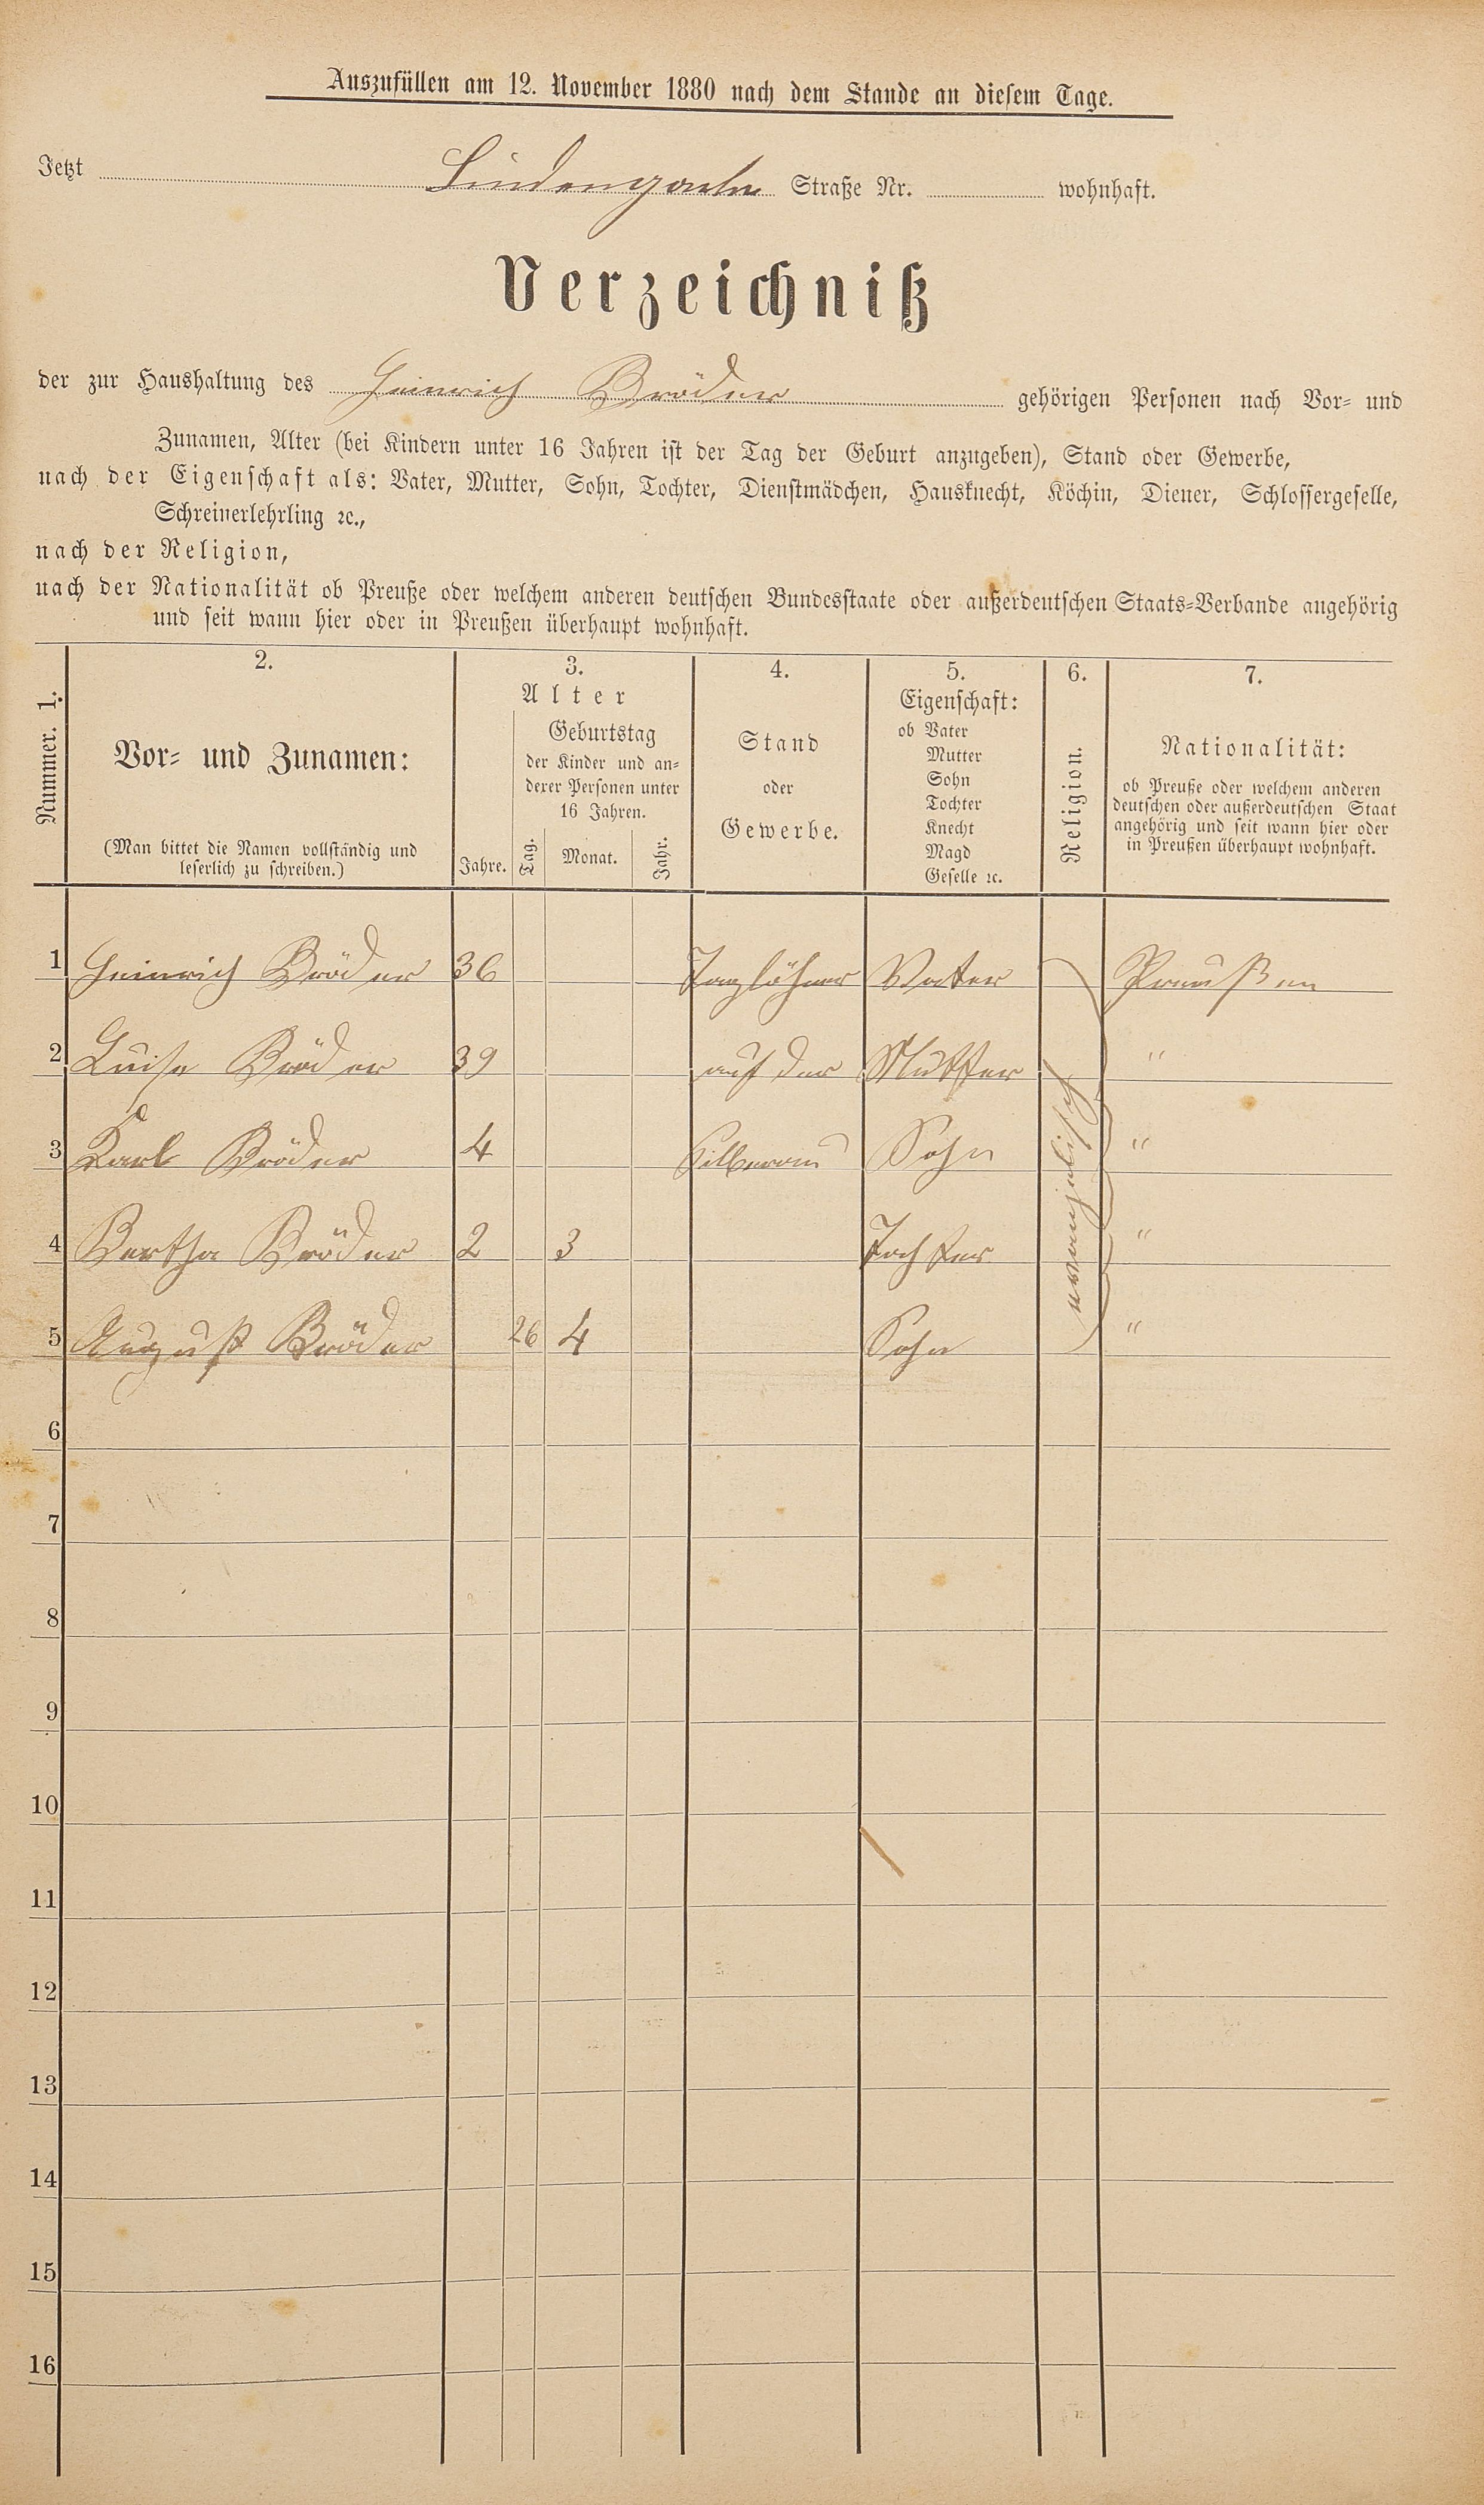 Auszufüllen am 12. November 1880 nach dem Stande an diesem Tage.
Jetzt Straße Nr. wohnhaft.
Verzeichniß
der zur Haushaltung des Heinrich Bröder gehörigen Personen nach Vor- und
Zunamen, Alter (bei Kindern unter 16 Jahren ist der Tag der Geburt anzugeben), Stand oder Gewerbe,
nach der Eigenschaft als: Vater, Mutter, Sohn, Tochter, Dienstmädchen, Hausknecht, Köchin, Diener, Schlossergeselle,
Schreinerlehrling ꝛc.,
nach der Religion,
nach der Nationalität ob Preuße oder welchem anderen deutschen Bundesstaate oder außerdeutschen Staats-Verbande angehörig
und seit wann hier oder in Preußen überhaupt wohnhaft.
Nummer. 1.
2.
Vor- und Zunamen:
(Man bittet die Namen vollständig und
leserlich zu schreiben.)
3.
Alter
Jahre.
Geburtstag
der Kinder und an-
derer Personen unter
16 Jahren.
Tag. Monat. Jahr.
4.
Stand
oder
Gewerbe.
5.
Eigenschaft:
ob Vater
Mutter
Sohn
Tochter
Knecht
Magd
Geselle ꝛc.
6.
Religion.
7.
Nationalität:
ob Preuße oder welchem anderen
deutschen oder außerdeutschen Staat
angehörig und seit wann hier oder
in Preußen überhaupt wohnhaft.
1 Heinrich Bröder 36 Taglöhner Vater Preußen
2 Luise Bröder 39 auf der Mutter "
3 Karl Bröder 4 Sohn "
4 Bertha Bröder 2 3 Tochter "
5 August Bröder 26 4 Sohn "
evangelisch
6
7
8
9
10
11
12
13
14
15
16